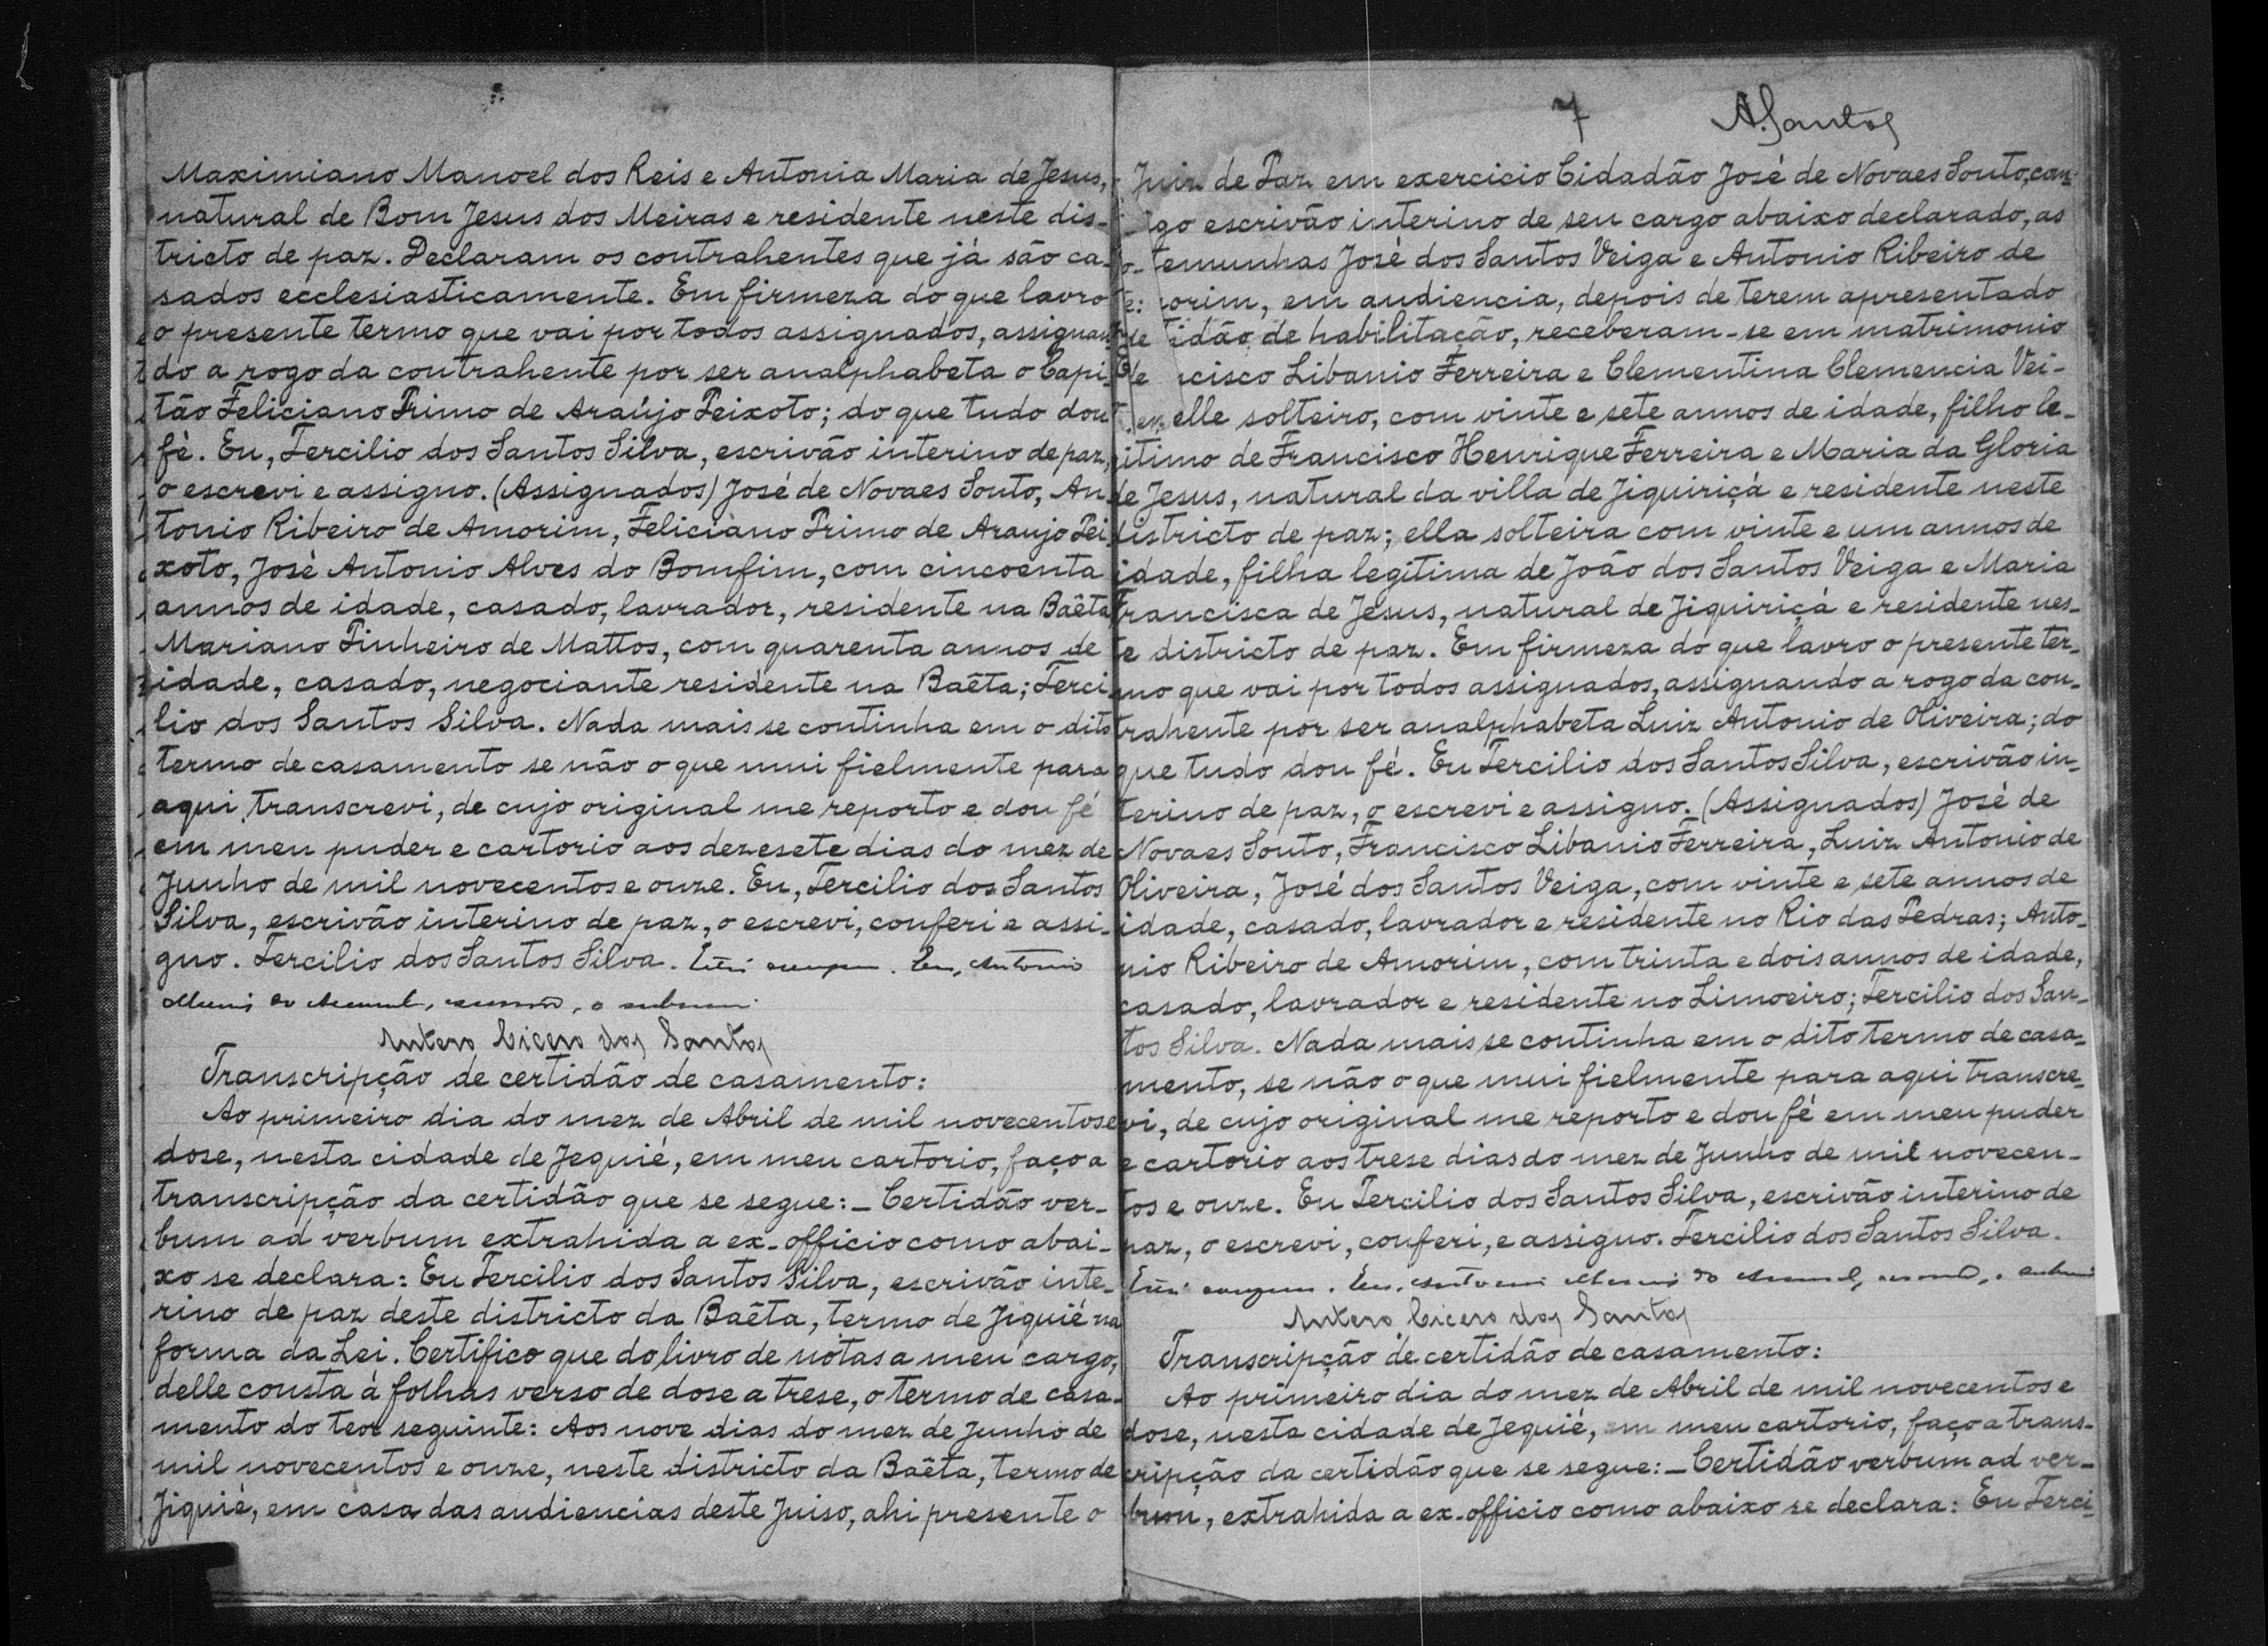 Maximiano Manoel dos Reis e Antonia Maria de Jesus,
natural de Bom Jesus dos Meiras e residente neste dis-
tricto de paz. Declaram os contrahentes que já são ca-
sados ecclesiasticamente. Em firmeza do que lavro
o presente termo que vai por todos assignados, assignan-
do a rogo da contrahente por ser analphabeta o Capi-
tão Feliciano Primo de Araújo Peixoto; do que tudo dou
fé. Eu, Tercilio dos Santos Silva, escrivão interino de paz,
o escrevi e assigno. (Assignados) José de Novaes Souto, An-
tonio Ribeiro de Amorim, Feliciano Primo de Araujo Pei-
xoto, José Antonio Alves do Bomfim, com cincoenta
annos de idade, casado, lavrador, residente na Baêta
Mariano Pinheiro de Mattos, com quarenta annos de
idade, casado, negociante residente na Baêta; Terci-
lio dos Santos Silva. Nada mais se continha em o dito
termo de casamento se não o que mui fielmente para
aqui transcrevi, de cujo original me reporto e dou fé
em meu puder e cartorio aos dezesete dias do mez de
Junho de mil novecentos e onze. Eu, Tercilio dos Santos
Silva, escrivão interino de paz, o escrevi, conferi e assi-
gno. Tercilio dos Santos Silva. Eu, Antonio
o
Antero Cicero dos Santos
Transcripção de certidão de casamento:
Ao primeiro dia do mez de Abril de mil novecentos e
dose, nesta cidade de Jequié, em meu cartorio, faço a
transcripção da certidão que se segue: - Certidão ver-
bum ad verbum extrahida a ex-officio como abai-
xo se declara: Eu Tercilio dos Santos Silva, escrivão inte-
rino de paz deste districto da Baêta, termo de Jiquié na
forma da Lei. Certifico que do livro de notas a meu cargo,
delle consta á folhas verso de dose a trese, o termo de casa-
mento do teor seguinte: Aos nove dias do mez de Junho de
mil novecentos e onze, neste districto da Baêta, termo de
Jiquié, em casa das audiencias deste Juiso, ahi presente o
7 A. Santos
Juiz de Paz em exercicio Cidadão José de Novaes Souto, com-
igo escrivão interino de seu cargo abaixo declarado, as
temunhas José dos Santos Veiga e Antonio Ribeiro de
orim, em audiencia, depois de terem apresentado
tidão de habilitação, receberam-se em matrimonio
cisco Libanio Ferreira e Clementina Clemencia Vei-
elle solteiro, com vinte e sete annos de idade, filho le-
gitimo de Francisco Henrique Ferreira e Maria da Gloria
de Jesus, natural da villa de Jiquiriçá e residente neste
districto de paz; ella solteira com vinte e um annos de
idade, filha legitima de João dos Santos Veiga e Maria
Francisca de Jesus, natural de Jiquiriçá e residente nes-
te districto de paz. Em firmeza do que lavro o presente ter-
mo que vai por todos assignados, assignando a rogo da con-
trahente por ser analphabeta Luiz Antonio de Oliveira; do
que tudo dou fé. Eu Tercilio dos Santos Silva, escrivão in-
terino de paz, o escrevi e assigno. (Assignados) José de
Novaes Souto, Francisco Libanio Ferreira, Luiz Antonio de
Oliveira, José dos Santos Veiga, com vinte e sete annos de
idade, casado, lavrador e residente no Rio das Pedras; Anto-
nio Ribeiro de Amorim, com trinta e dois annos de idade,
casado, lavrador e residente no Limoeiro; Tercilio dos San-
tos Silva. Nada mais se continha em o dito termo de casa-
mento, se não o que mui fielmente para aqui transcre-
vi, de cujo original me reporto e dou fé em meu puder
e cartorio aos trese dias do mez de Junho de mil novecen-
tos e onze. Eu Tercilio dos Santos Silva, escrivão interino de
paz, o escrevi, conferi, e assigno. Tercilio dos Santos Silva.
Eu, Antonio
Antero Cicero dos Santos
Transcripção de certidão de casamento:
Ao primeiro dia do mez de Abril de mil novecentos e
dose, nesta cidade de Jequié, em meu cartorio, faço a trans-
cripção da certidão que se segue: - Certidão verbum ad ver-
bum, extrahida a ex-officio como abaixo se declara: Eu Terci-